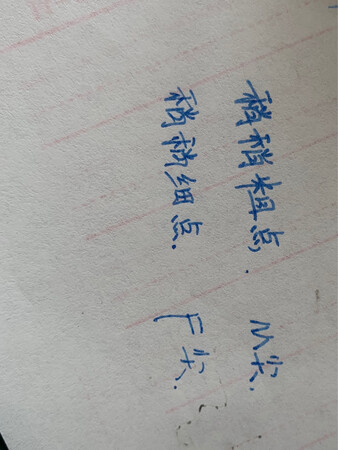 稍稍粗点, M尖.
稍稍细点. F尖.